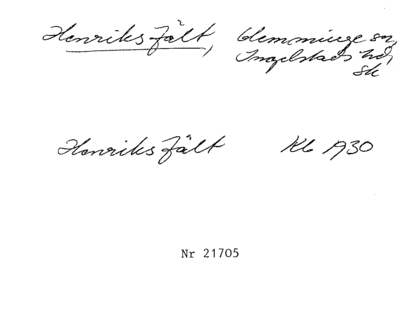 Henriks Fält, Glemminge sn,
Ingelstads hd,
Sk
Henriks Fält Kb 1930
Nr 21705